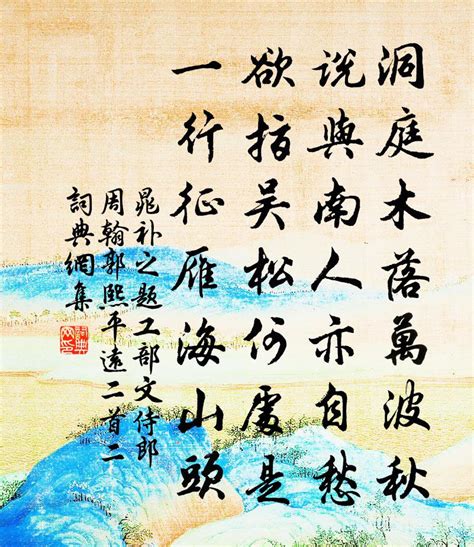 洞庭木落萬波秋
說與南人亦自愁
欲指吳松何處是
一行征雁海山頭
晁补之題工部文侍郎
周翰郭熙平遠二首二
詞典網集